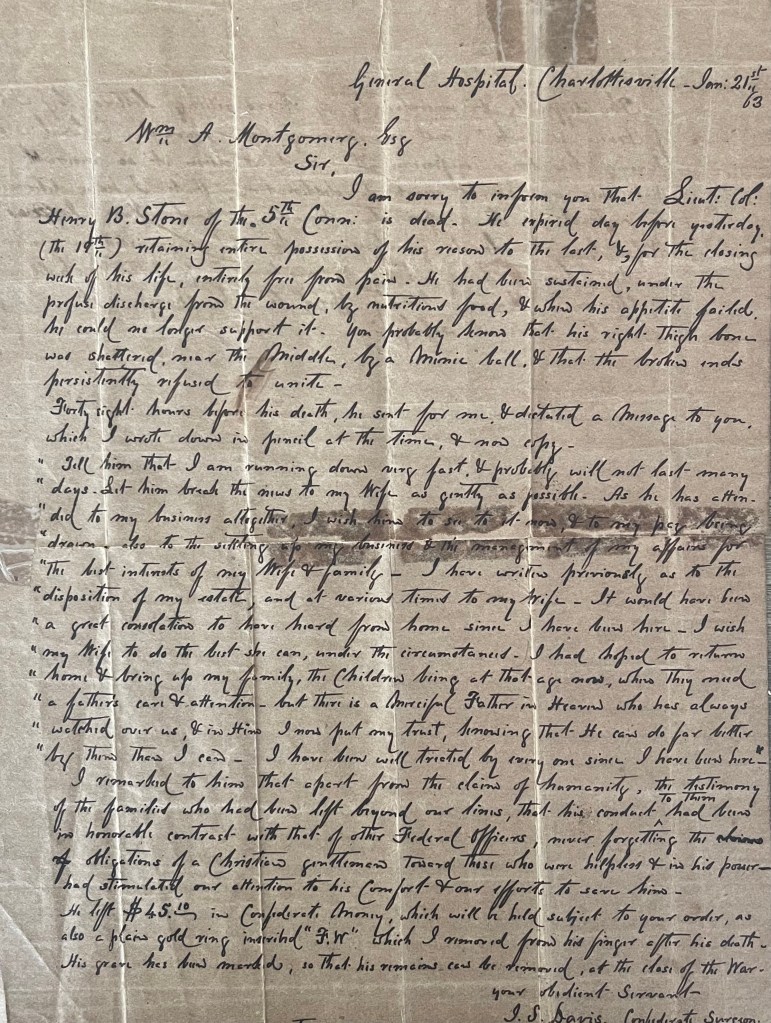 General Hospital. Charlottesville - Jan: 21st
63
Wm A. Montgomery. Esq
Sir,
I am sorry to inform you that Lieut: Col:
Henry B. Stone of the 5th Conn: is dead. He expired day before yesterday,
(the 19th) retaining entire possession of his reason to the last, &, for the closing
week of his life, entirely free from pain - He had been sustained, under the
profuse discharge from the wound, by nutritious food, & when his appetite failed,
he could no longer support it - You probably know that his right thigh bone
was shattered, near the Middle, by a Minie ball, & that the broken ends
persistently refused to unite -
Forty eight hours before his death, he sent for me, & dictated a Message to you,
which I wrote down in pencil at the time, & now copy -
"Tell him that I am running down very fast, & probably will not last many
"days - Let him break the news to my Wife as gently as possible - As he has atten-
"ded to my business altogether, I wish him to see to it now, & to my pay being
"drawn - also to the settling up my business & the management of my affairs for
"the best interests of my Wife & family - I have written previously as to the
"disposition of my estate, and at various times to my wife - It would have been
"a great consolation to have heard from home since I have been here - I wish
"my Wife to do the best she can, under the circumstances - I had hoped to return
"home & bring up my family, the Children being at that age now, when they need
"a father's care & attention - but there is a Merciful Father in Heaven who has always
"watched over us, & in Him I now put my trust, knowing that He can do far better
"by them than I can - I have been well treated by every one since I have been here -"
I remarked to him that apart from the claim of humanity, the testimony
to them
of the families who had been left beyond our lines, that his conduct, had been
in honorable contrast with that of other Federal Officers, never forgetting the claims
of obligations of a Christian gentleman toward those who were helpless & in his power -
had stimulated our attention to his Comfort & our efforts to save him -
He left $45.10 in Confederate Money, which will be held subject to your order, as
also a plain gold ring inscribed "F.W" which I removed from his finger after his death -
His grave has been marked, so that his remains can be removed, at the close of the War -
your obedient Servant -
J. S. Davis. Confederate Surgeon.